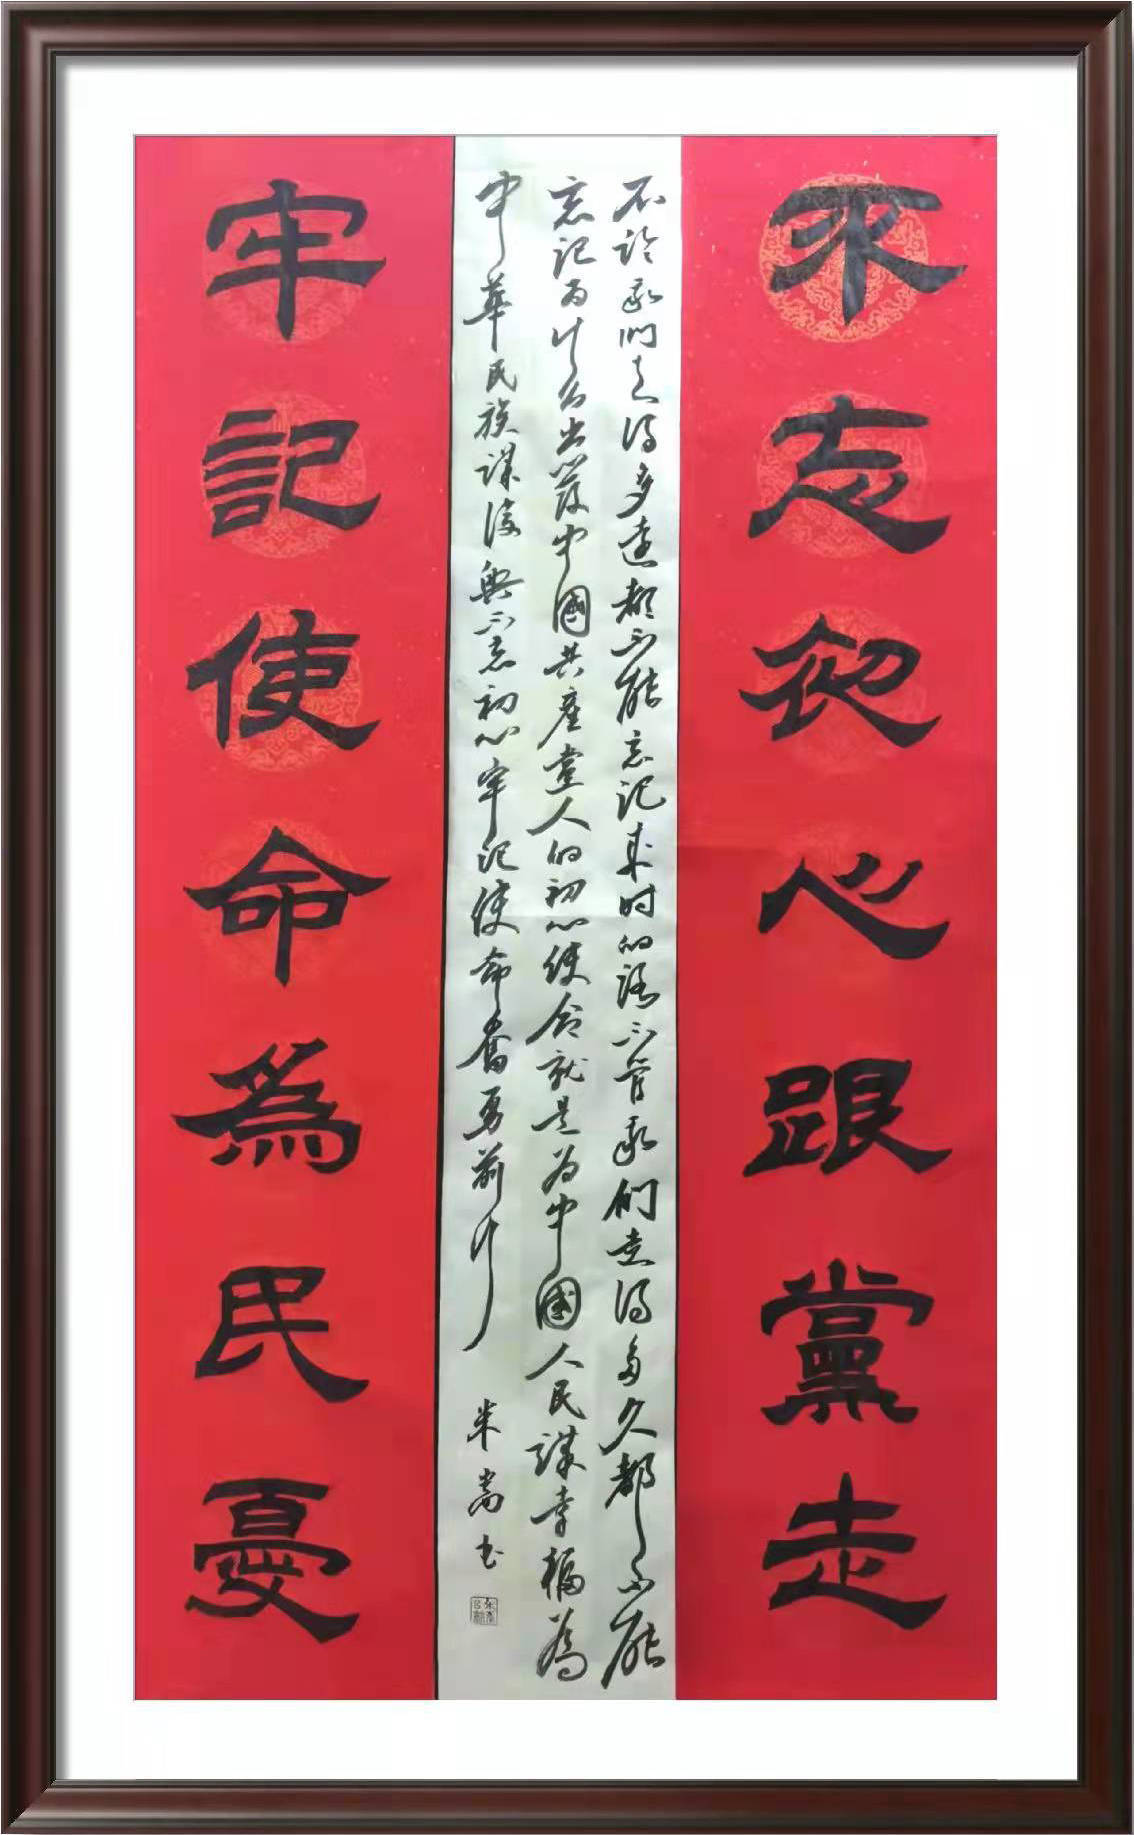 不忘初心跟黨走
不论我们走得多远都不能忘记来时的路不管我们走得多久都不能
忘记为什么出发中國共產党人的初心使命就是为中國人民谋幸福為
中華民族谋復興不忘初心牢记使命奮勇前行
朱嵩书
牢記使命為民憂